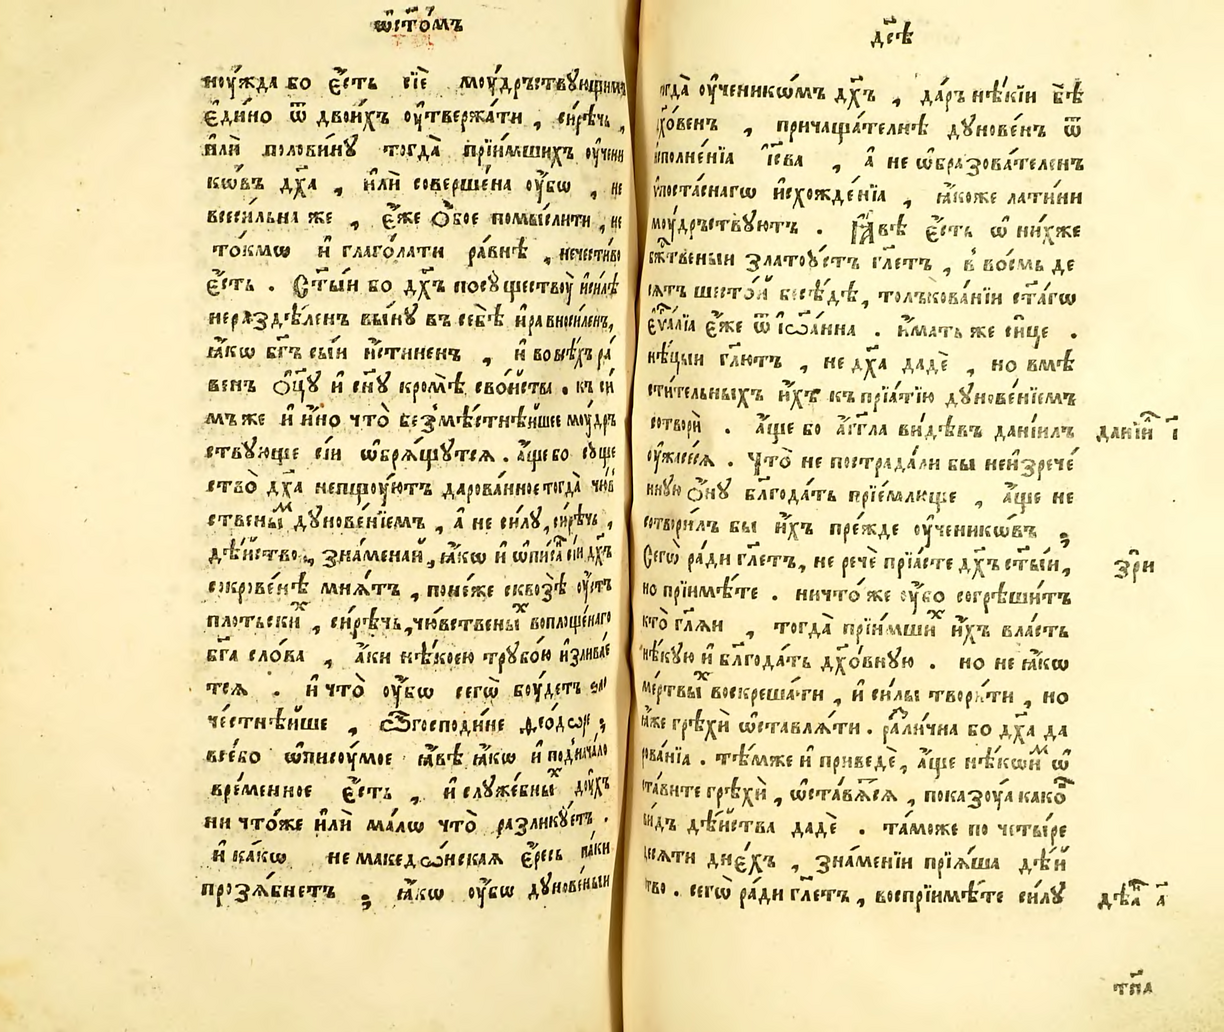 ѡ҆ст҃о́мъ
ноу́жда бо є҆́сть сїѐ моу́дръствꙋющимъ
є҆ди́но ѿ двои́хъ оу҆твержа́ти , си́рѣчь ,
и҆лѝ половинꙋ тогда̀ прїи́мшихъ оу҆чени
кѡ́въ дх҃а , и҆лѝ соверше́на оу҆́бѡ , не
всеси́льна же , є҆́же ѻ҆бое помы́слити , не
то́кмѡ и҆ глаго́лати ра́внѣ , нечести́во
є҆́сть . Ст҃ы́и бо дх҃ъ посꙋществоу̀ и҆си́лѣ
нераздѣ́ленъ вы́нꙋ въ себѣ̀ и҆равноси́ленъ,
ꙗ҆́кѡ бг҃ъ сы́и и҆́стиненъ , и҆ вовсѣ́хъ ра́
венъ ѻ҆ц҃ꙋ̀ и҆ сн҃ꙋ кромѣ̀ сво́йства . къ си́
мъ же и҆ и҆́но что̀ безмѣ́стнѣйшее моу́др
ствꙋюще сїи ѡ҆брѧ́щꙋтсѧ . а҆́ще бо сꙋще
ство̀ дх҃а непщоу́ютъ дарова́нное тогда̀ чꙋ́в
ствены́м дꙋнове́нїемъ , а҆ не си́лꙋ, си́рѣчь ,
дѣ́йство , зна́менай, ꙗ҆́кѡ и҆ ѡ҆писа сїи дх҃ъ
сокрове́нѣ мнѧ́тъ , поне́же сквозѣ̀ оу҆стъ
пло́тьски́х , си́рѣчь, чꙋ́вствены́х воплоще́наго
бг҃а сло́ва , а҆́ки нѣ́коею трꙋбо́ю и҆злива́е
тсѧ . и҆ что̀ оу҆́бѡ сегѡ̀ боу́детъ ꙁло
че́стнѣйше , Ѽ господи́не Ѳео́дѡре ;
всѐбо ѡ҆писоу́мое ꙗ҆́вѣ ꙗ҆́кѡ и҆ поднача́ло
вре́менное є҆́сть , и҆ слꙋже́бны́х дꙋ́хъ
ничто́же и҆лѝ ма́лѡ что̀ разли́кꙋетъ .
и҆ ка́кѡ не македѡ́нская є҆́ресь па́ки
прозѧ́бнетъ ; ꙗ҆́кѡ оу҆́бѡ дꙋнове́ныи
дс҃ѣ
огда̀ оу҆ченикѡ́мъ дх҃ъ , да́ръ нѣ́кїи бѣ̀
дх҃о́венъ , причаща́телнѣ дꙋнове́нъ ѿ
исполне́нїѧ і҆с҃ва , а҆ не ѡ҆бразова́теленъ
ѵ҆поста́снагѡ и҆схожде́нїѧ , ꙗ҆́коже лати́ни
моу́дръствꙋютъ . Ꙗ҆́вѣ є҆́сть ѡ҆ ни́хже
бж҃твеныи златоꙋ́стъ гл҃етъ , в҆ во́смь де
сѧтъ шесто́й бесѣ́дѣ, толъкова́нїи ст҃а́гѡ
є҆ѵ҃лїа є҆́же ѿ і҆ѡа́нна . и҆́мать же си́це .
нѣ́цыи гл҃ютъ , не дх҃а дадѐ , но вмѣ
сти́тельныхъ и҆̀хъ къ прїѧ́тїю дꙋнове́нїемъ
сотворѝ . а҆́ще бо а҆́гг҃ла ви́дѣвъ данїи́лъ
оу҆жасе́сѧ . Что̀ не пострада́ли бы неизрече́
ннꙋю ѻ҆́нꙋ блг҃ода́ть прїе́млюще , а҆́ще не
сотвори́лъ бы и҆́хъ пре́жде оу҆ченикѡ́въ ;
Сегѡ̀ ра́ди гл҃етъ, не речѐ прїѧ́сте дх҃ъ ст҃ы́и,
но прїимѣ́те . ничто́ же оу҆́бо согрѣши́тъ
кто̀ гл҃ѧи , тогда̀ прїи́мши́х и҆́хъ вла́сть
нѣ́кꙋю и҆ блг҃ода́ть дх҃о́внꙋю . но не ꙗ҆́кѡ
ме́ртвы́х воскреша́ти , и҆ си́лы твори́ти , но
ꙗ҆́же грѣхѝ ѡ҆ставлѧ́ти . разли́чна бо дх҃а да
рова́нїѧ . тѣ́мже и҆ приведѐ , а҆́ще нѣ́коим ѡ҆
ста́вите грѣхѝ , ѡ҆ставѧ́тсѧ , показоу́ѧ како́в
ви́дъ дѣ́йства дадѐ . та́може по четы́ре
десѧти дне́хъ , зна́менїи прїѧ́ша дѣ́й
ство . сегѡ̀ ра́ди гл҃етъ , воспрїимѣ́те си́лꙋ
данїи́л і҃
зрѝ
дѣѧ҆́н а҃
тп҃а